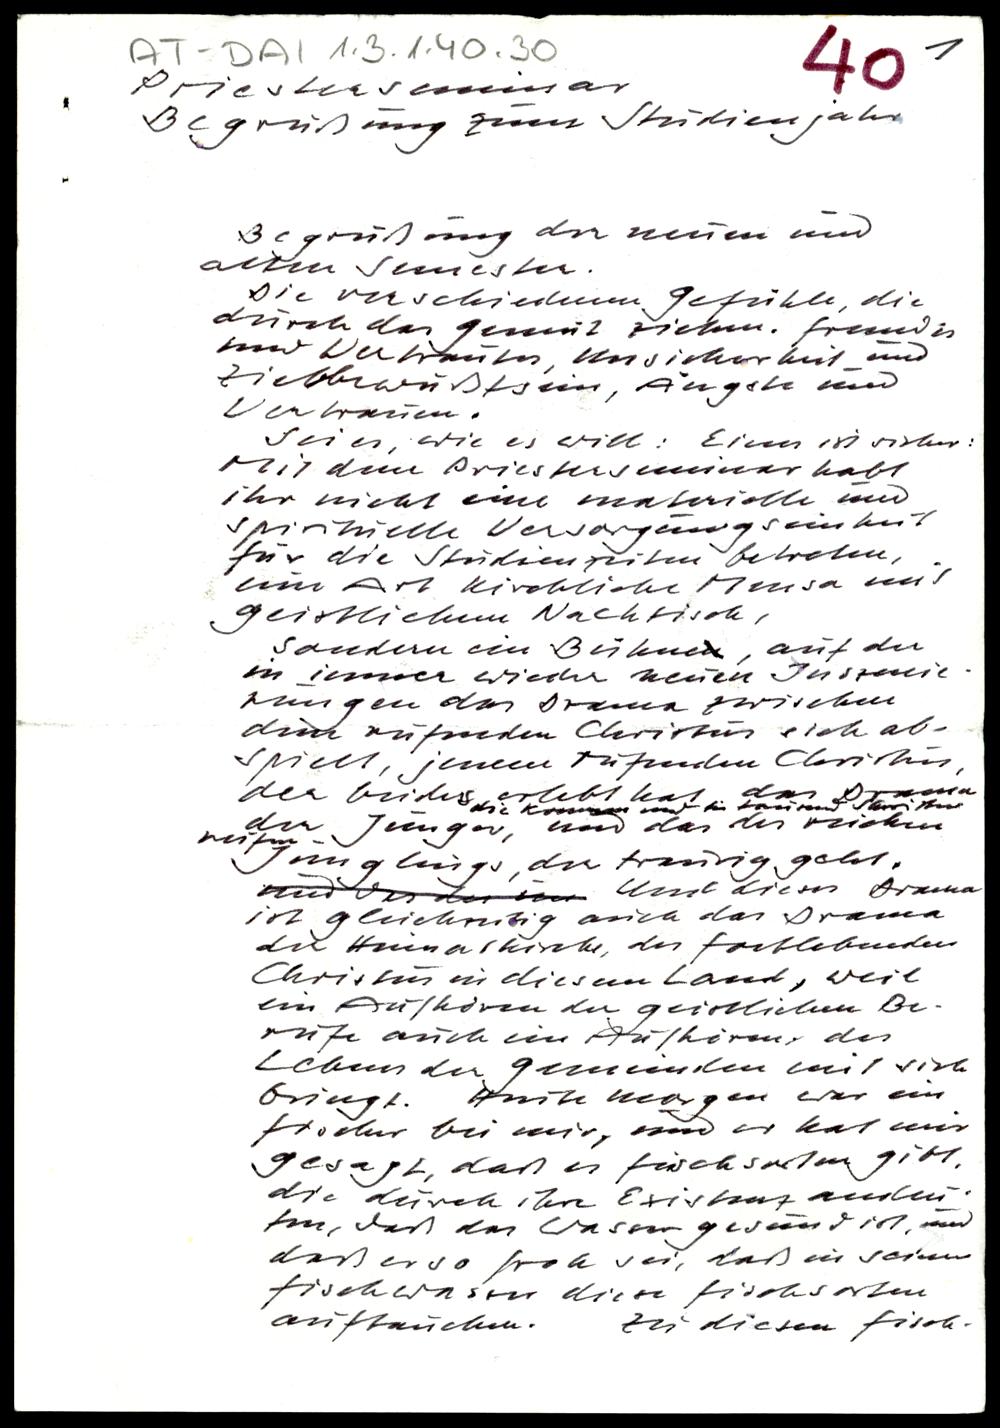 AT-DAI 1.3.1.40.30
40 1
Priesterseminar
Begrüßung zum Studienjahr
Begrüßung der neuen und
alten Semester.
Die verschiedenen Gefühle, die
durch das Gemüt ziehen. Fremdes
und Vertrautes, Unsicherheit und
Zielbewußtsein, Ängste und
Vertrauen.
Sei es, wie es will: Eines ist sicher:
Mit dem Priesterseminar habt
ihr nicht eine materielle und
spirituelle Versorgungseinheit
für die Studienzeiten betreten,
eine Art kirchliche Mensa mit
geistlichem Nachtisch,
sondern ein Bühne, auf der
in immer wieder neuen Inszenie-
rungen das Drama zwischen
dem rufenden Christus sich ab-
spielt, jenem rufenden Christus,
der beides erlebt hat, das Drama
die kommen und in tausend
der Jünger, und das des reichen
Jünglings, der traurig geht.
und das der Und dieses Drama
ist gleichzeitig auch das Drama
der Heimatkirche, des fortlebenden
Christus in diesem Land, weil
ein Aufhören der geistlichen Be-
rufe auch ein Aufhören des
Lebens der Gemeinden mit sich
bringt. Heute morgen war ein
Fischer bei mir, und er hat mir
gesagt, daß es Fischsorten gibt,
die durch ihre Existenz andeu-
ten, daß das Wasser gesund ist, und
daß er so froh sei, daß in seinem
Fischwasser diese Fischsorten
auftauchen. Zu diesen Fisch-